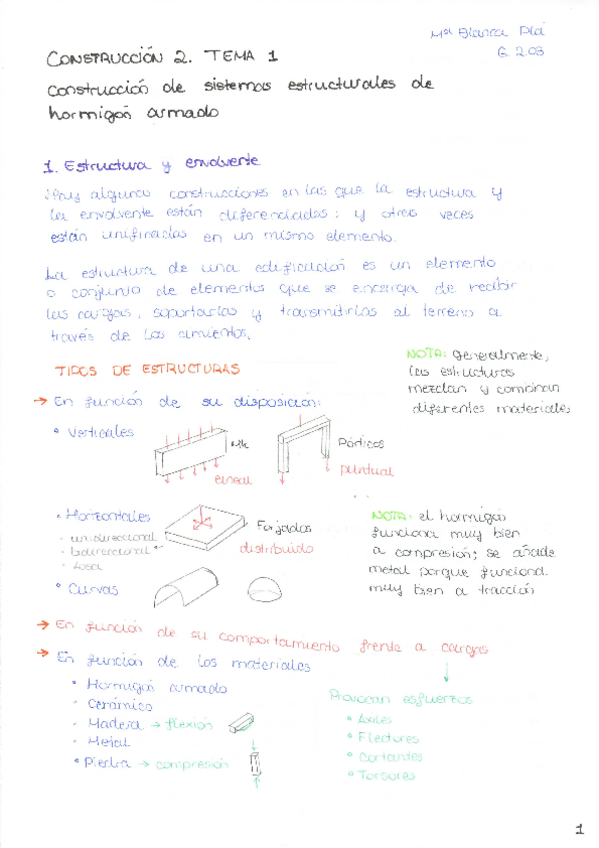 Mª Blanca Plá
G 2.03
CONSTRUCCIÓN 2. TEMA 1
Construcción de sistemas estructurales de
hormigón armado
1. Estructura y envolvente
Hay algunas construcciones en las que la estructura y
la envolvente están diferenciadas; y otras veces
están unificadas en un mismo elemento.
La estructura de una edificación es un elemento
o conjunto de elementos que se encarga de recibir
las cargas, soportarlas y transmitirlas al terreno a
través de los cimientos.
TIPOS DE ESTRUCTURAS
NOTA: Generalmente,
las estructuras
mezclan y combinan
diferentes materiales
→ En función de su disposición:
• Verticales
Pórticos
lineal
puntual
• Horizontales
- unidireccional
- bidireccional
- losa
Forjados
distribuido
NOTA: el hormigón
funciona muy bien
a compresión; se añade
metal porque funciona
muy bien a tracción
• Curvas
→ En función de su comportamiento frente a cargas
→ En función de los materiales
• Hormigón armado
- Cerámico
- Madera → flexión
- Metal
• Piedra → compresión
Provocan esfuerzos
• Axiles
• Flectores
• Cortantes
• Torsores
1